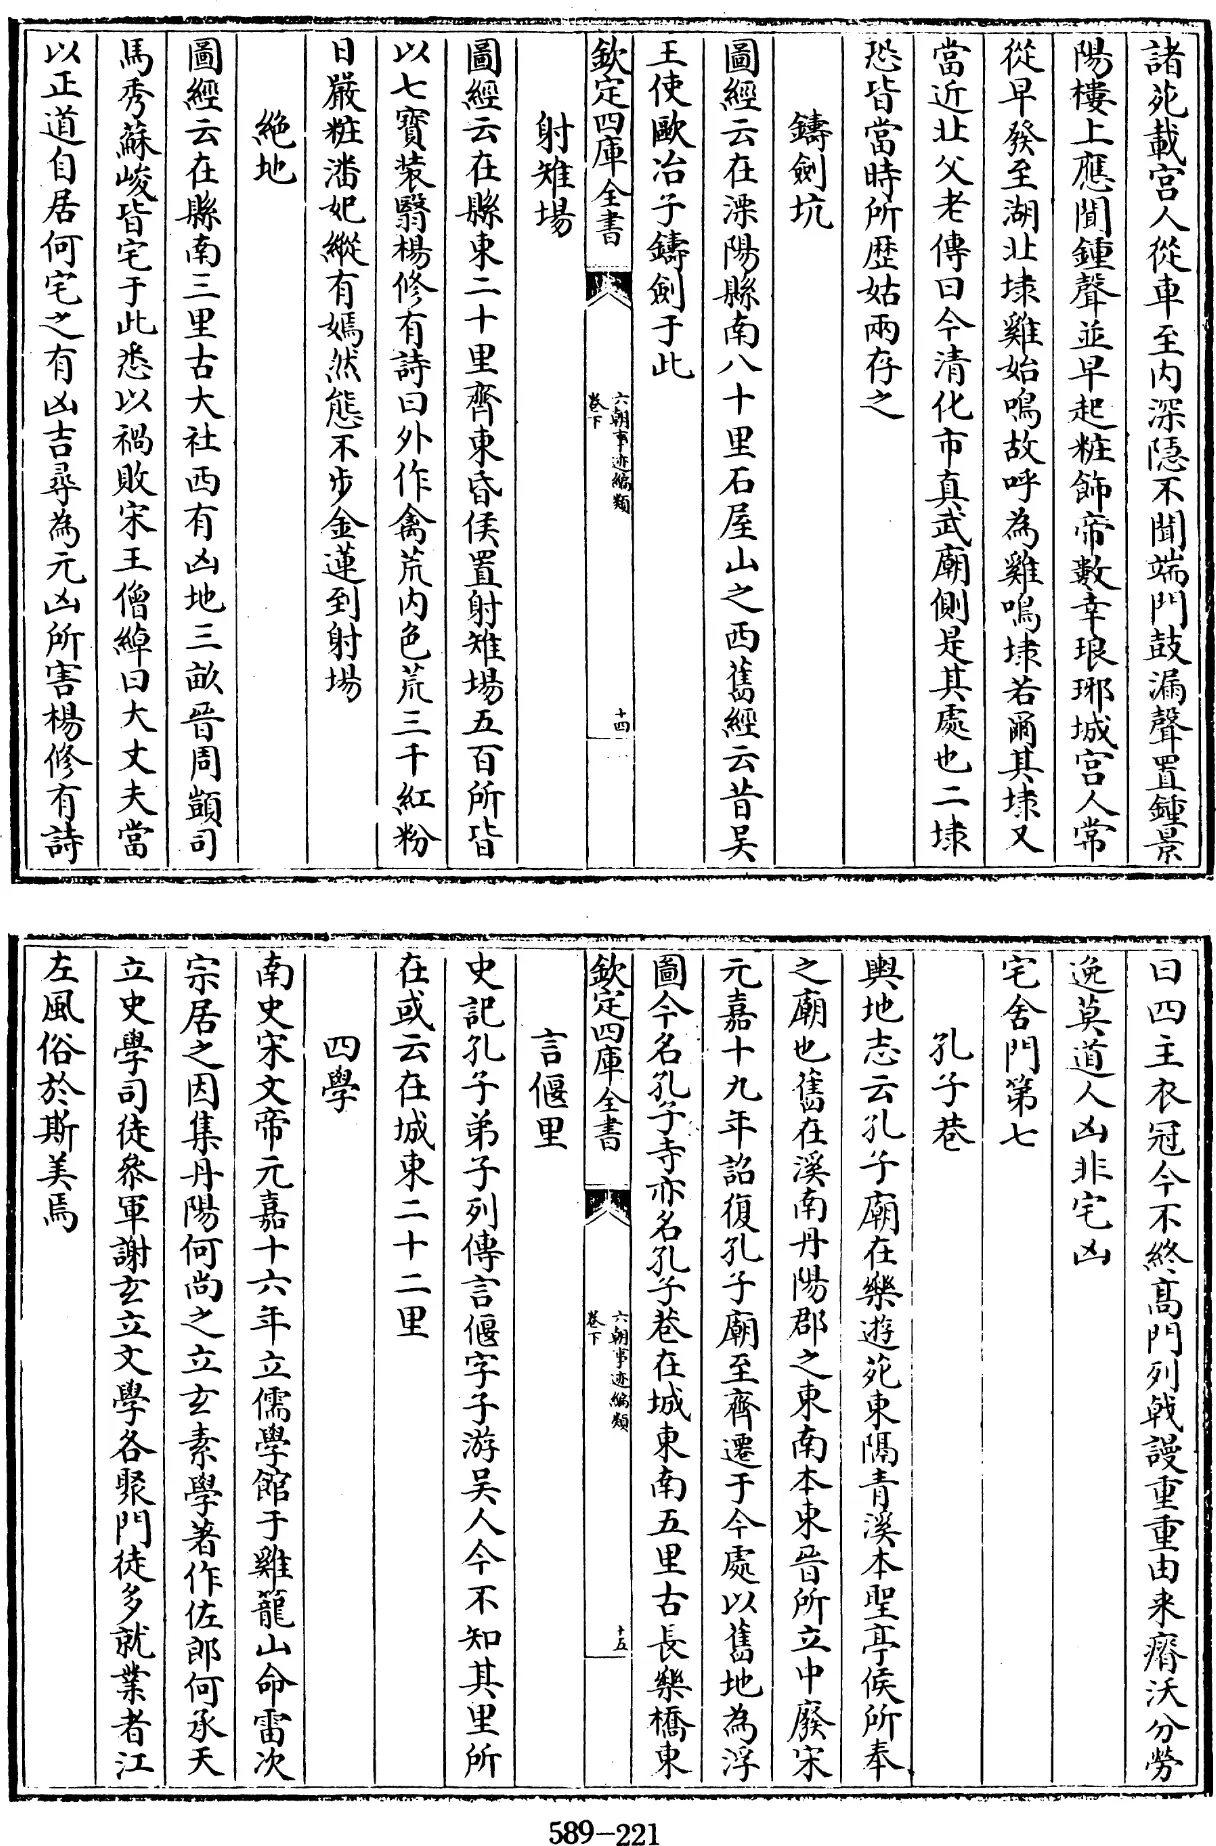 諸苑載宫人從車至内深隱不聞端門鼓漏聲置鍾景
陽樓上應聞鍾聲並早起粧飾帝數幸琅琊城宫人常
從早發至湖北埭雞始鳴故呼為雞鳴埭若爾其埭又
當近北父老傳曰今清化市真武廟側是其處也二埭
恐皆當時所歴姑兩存之
鑄劍坑
圖經云在溧陽縣南八十里石屋山之西舊經云昔吴
王使歐冶子鑄劍于此
欽定四庫全書
六朝事迹編類
卷下
十四
射雉場
圖經云在縣東二十里齊東昏侯置射雉場五百所皆
以七寶装翳楊修有詩曰外作禽荒内色荒三千紅粉
日嚴粧潘妃縱有嫣然態不步金蓮到射場
絶地
圖經云在縣南三里古大社西有凶地三畝晉周顗司
馬秀蘇峻皆宅于此悉以禍敗宋王僧綽曰大丈夫當
以正道自居何宅之有凶吉尋為元凶所害楊修有詩
曰四主衣冠今不終髙門列戟謾重重由来瘠沃分勞
逸莫道人凶非宅凶
宅舍門第七
孔子巷
輿地志云孔子廟在樂遊苑東隔青溪本聖亭侯所奉
之廟也舊在溪南丹陽郡之東南本東晉所立中廢宋
元嘉十九年詔復孔子廟至齊遷于今處以舊地為浮
圖今名孔子寺亦名孔子巷在城東南五里古長樂橋東
欽定四庫全書
六朝事迹編類
卷下
十五
言偃里
史記孔子弟子列傳言偃字子游吴人今不知其里所
在或云在城東二十二里
四學
南史宋文帝元嘉十六年立儒學館于雞籠山命雷次
宗居之因集丹陽何尚之立玄素學著作佐郎何承天
立史學司徒叅軍謝玄立文學各聚門徒多就業者江
左風俗於斯美焉
589-221